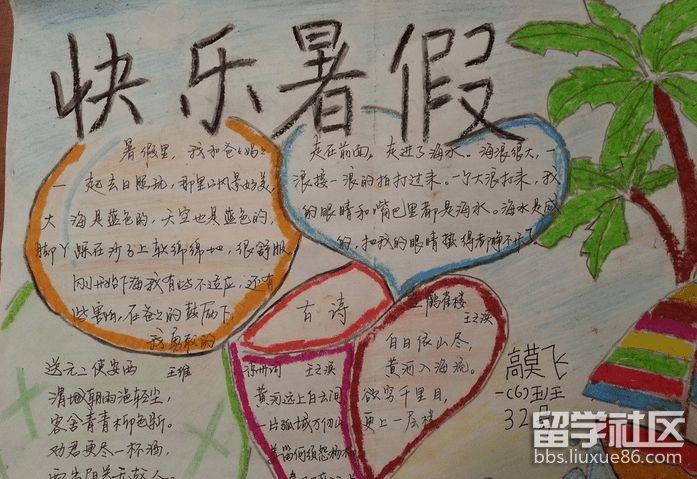 快乐暑假
暑假里，我和爸爸妈妈
一起去日照玩，那里的风景好美，
大海是蓝色的，天空也是蓝色的，
脚丫踩在沙子上软绵绵地，很舒服，
刚开始下海我有些不适应，还有
些害怕，在爸爸的鼓励下，
我勇敢的
走在前面，走进了海水。海浪很大，一
浪接一浪的拍打过来。一个大浪打来，我
的眼睛和嘴巴里都是海水。海水是咸
的，把我的眼睛蛰得都睁不开了。
古诗
登鹳雀楼
王之涣
白日依山尽，
黄河入海流。
欲穷千里目，
更上一层楼
送元二使安西
王维
渭城朝雨浥轻尘，
客舍青青柳色新。
劝君更尽一杯酒，
西出阳关无故人。
凉州词
王之涣
黄河远上白云间
一片孤城万仞山
羌笛何须怨杨柳
高莫飞
一(6)班
32号
留学社区
bbs.liuxue86.com